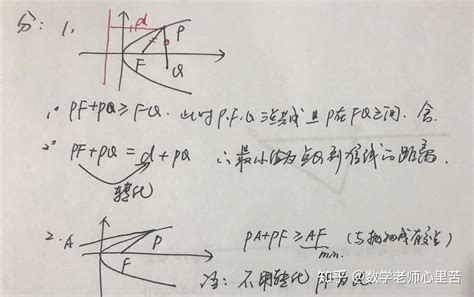 分：1、
d
P
F
Q
1° PF+PQ≥FQ. 此时P.F.Q三点共线且P在FQ之间. 舍.
2° PF+PQ = d+PQ ∴最小值为点Q到准线的距离.
转化
2. A
P
F
PA+PF ≥ AF (与抛物线有交点)
min.
注：不用转化 即为
知乎 @数学老师心里苦